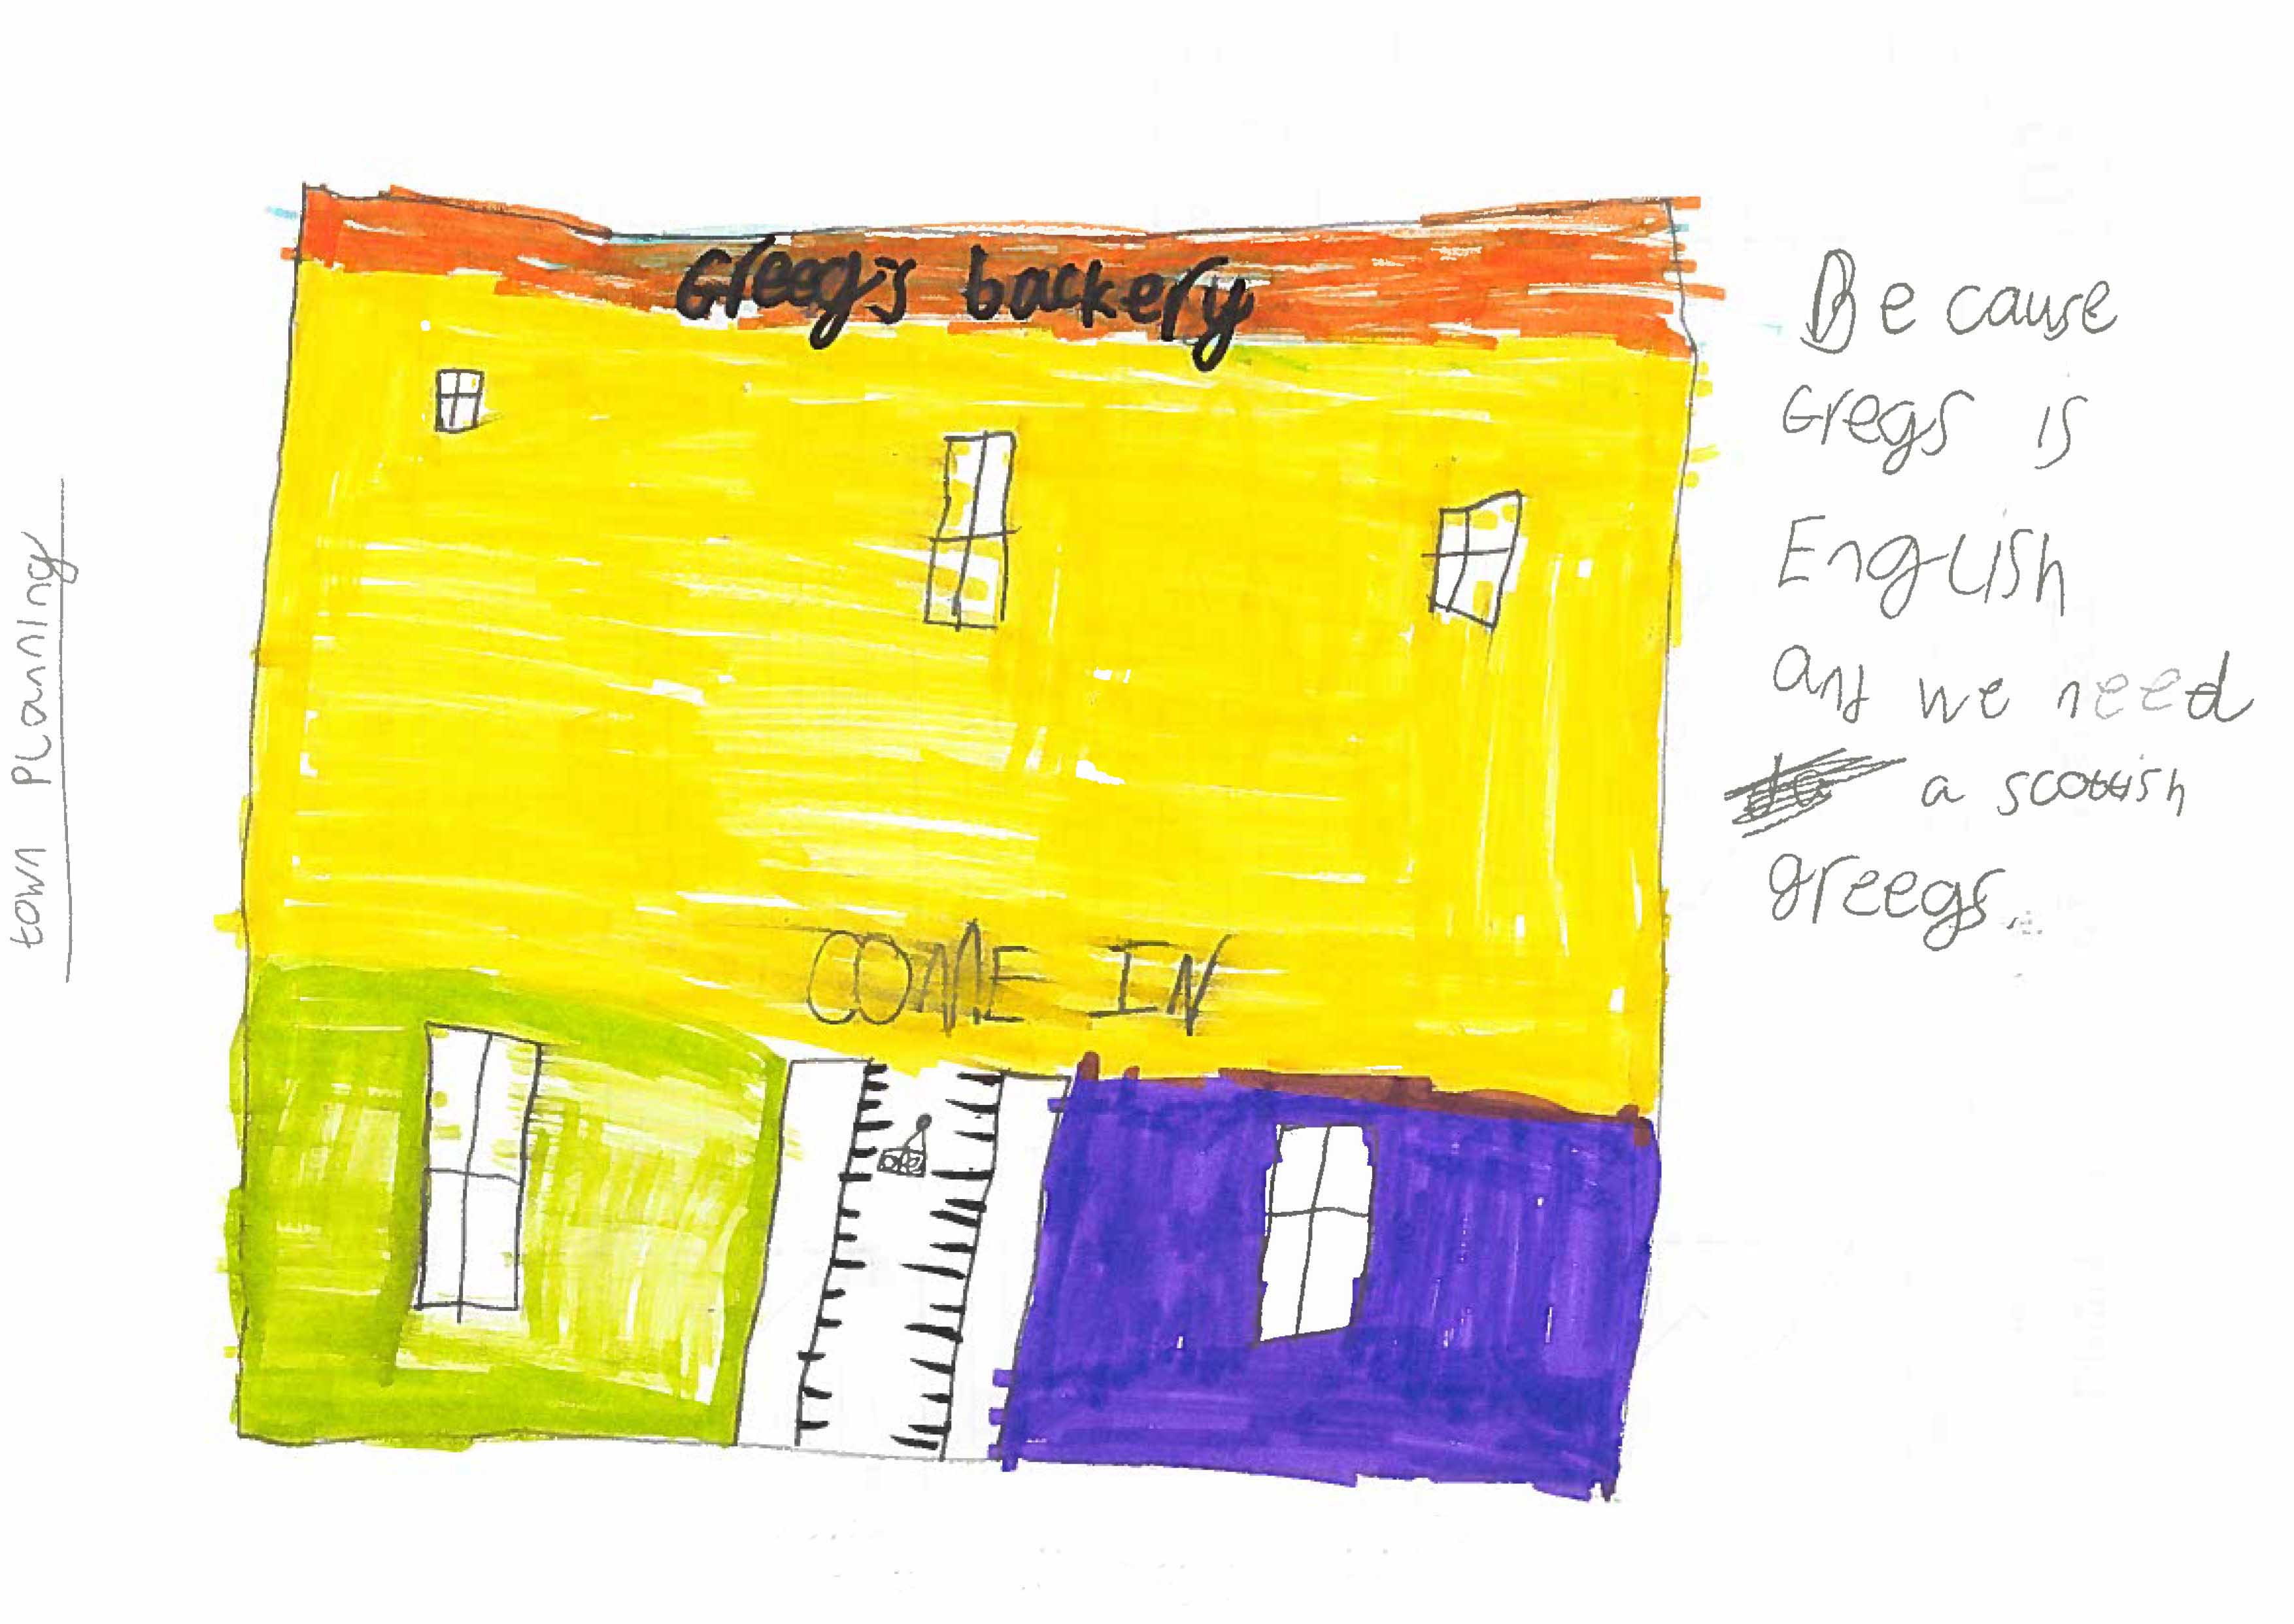 town planning
Greeg's backery
COME IN
Because
Gregs is
English
and we need
a scottish
greegs.